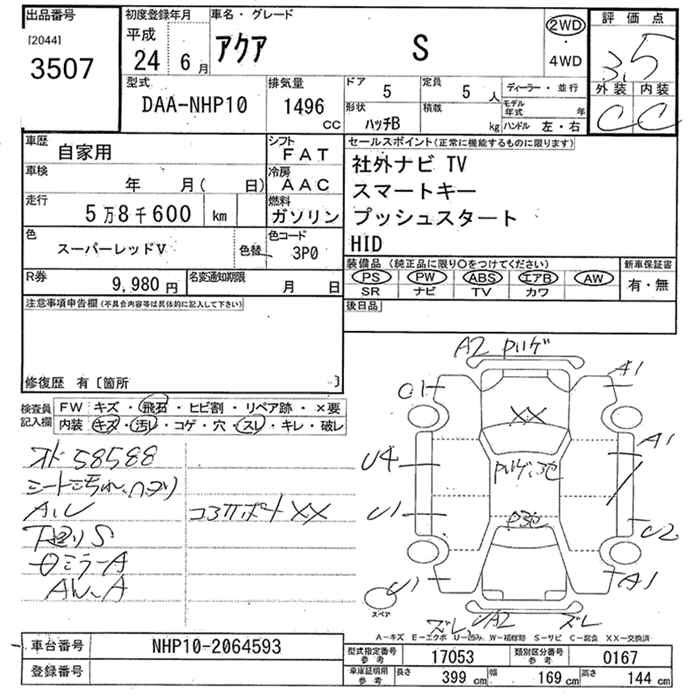 出品番号
[2044]
3507
初度登録年月
平成
24 6月
車名・グレード
アクア S
2WD
・
4WD
評価点
3.5
外装 内装
C C
型式
DAA-NHP10
排気量
1496
CC
ドア
5
定員
5人
ディーラー・並行
形状
ハッチB
積載
kg
モデル年式 年
ハンドル 左・右
車歴
自家用
シフト
FAT
車検
年 月( 日)
冷房
AAC
走行
5万8千600 km
燃料
ガソリン
色
スーパーレッドV
色替
色コード
3P0
R券
9,980円
名変通知期限
月 日
注意事項申告欄(不具合内容等は具体的に記入して下さい)
修復歴 有〔箇所 〕
セールスポイント(正常に機能するものに限ります)
社外ナビ TV
スマートキー
プッシュスタート
HID
装備品(純正品に限り○をつけてください)
PS PW ABS エアB AW
SR ナビ TV カワ
新車保証書
有・無
後日品
検査員記入欄
FW キズ・飛石・ヒビ割・リペア跡・×要
内装 キズ・汚レ・コゲ・穴・スレ・キレ・破レ
58588
シート汚れ、ヘタリ
A、U
コアサポート XX
下廻りS
ミラーA
AW、A
A2
A1
XX
U4
A1
U1
U2
U1
A1
スペア
ズレ UA2 ズレ
A-キズ E-エクボ U-凹み W-補修跡 S-サビ C-腐食 XX-交換済
車台番号
NHP10-2064593
登録番号
型式指定番号 参考
17053
類別区分番号 参考
0167
車庫証明用 参考
長さ 399cm 幅 169cm 高さ 144cm